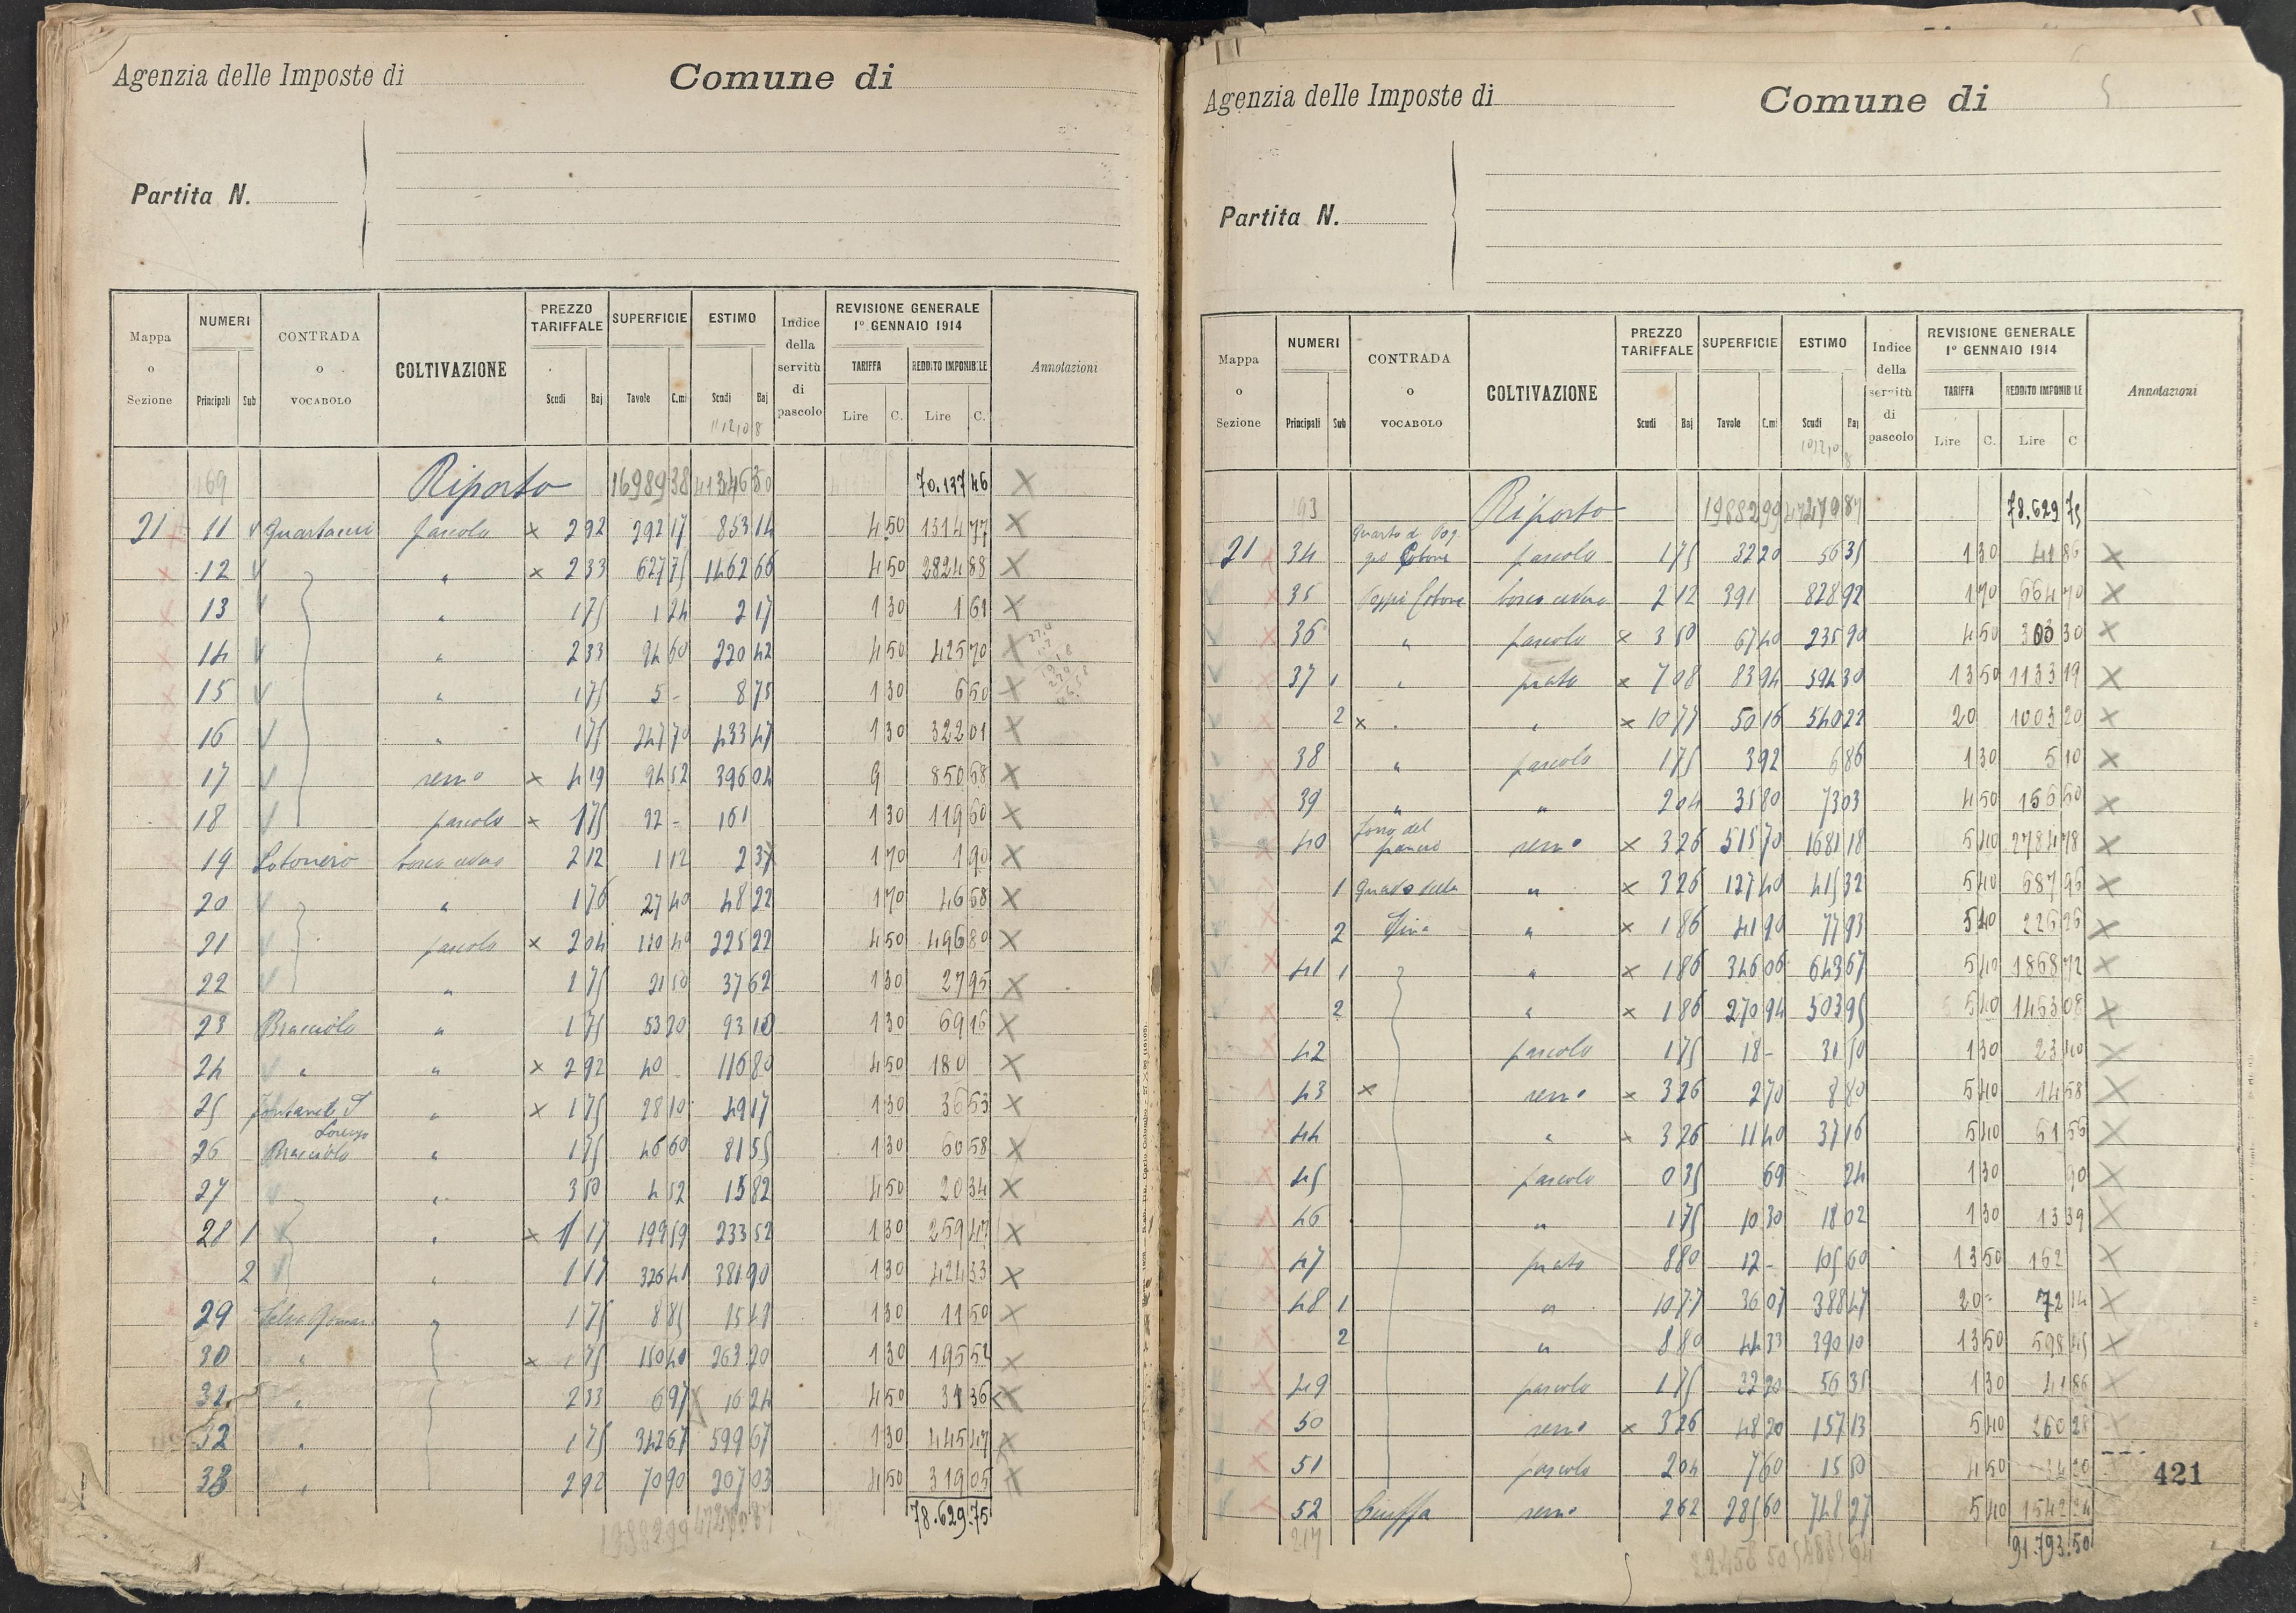 Agenzia delle Imposte di Comune di
Partita N.
Mappa o Sezione NUMERI Principali Sub CONTRADA o VOCABOLO COLTIVAZIONE PREZZO TARIFFALE Scudi Baj SUPERFICIE Tavole C.mi ESTIMO Scudi Baj Indice della servitù di pascolo REVISIONE GENERALE 1° GENNAIO 1914 TARIFFA Lire C. REDDITO IMPONIBILE Lire C. Annotazioni
169 Riporto 16989 38 41346 30 70.137 46 X
21 11 Quartacci pascolo x 2 92 292 17 853 14 4 50 1314 77 X
12 " x 2 33 627 75 1462 66 4 50 2824 88 X
13 " 1 75 1 24 2 17 1 30 1 61 X
14 " 2 33 94 60 220 42 4 50 425 70 X
15 " 1 75 5 - 8 75 1 30 6 50 X
16 " 1 75 247 70 433 47 1 30 322 01 X
17 semo x 4 19 94 52 396 04 9 850 68 X
18 pascolo x 1 75 92 - 161 1 30 119 60 X
19 bosco ceduo 2 12 1 12 2 37 1 70 1 90 X
20 " 1 76 27 40 48 22 1 70 46 58 X
21 pascolo x 2 04 110 40 225 22 4 50 496 80 X
22 " 1 75 21 50 37 62 1 30 27 95 X
23 Bracciolo " 1 75 53 20 93 10 1 30 69 16 X
24 " " x 2 92 40 - 116 80 4 50 180 X
25 " x 1 75 28 10 49 17 1 30 36 53 X
26 Bracciolo " 1 75 46 60 81 55 1 30 60 58 X
27 " 3 50 4 52 15 82 4 50 20 34 X
28 1 " x 1 17 199 59 233 52 1 30 259 47 X
2 " 1 17 326 41 381 90 1 30 424 33 X
29 " 1 75 8 85 15 49 1 30 11 50 X
30 " x 1 75 150 40 263 20 1 30 195 52 X
31 " 2 33 6 97 16 24 4 50 31 36 X
32 " 1 75 342 67 599 67 1 30 445 47 X
33 " 2 92 70 90 207 03 4 50 319 05 X
78.629.75
Agenzia delle Imposte di Comune di
Partita N.
Mappa o Sezione NUMERI Principali Sub CONTRADA o VOCABOLO COLTIVAZIONE PREZZO TARIFFALE Scudi Baj SUPERFICIE Tavole C.mi ESTIMO Scudi Baj Indice della servitù di pascolo REVISIONE GENERALE 1° GENNAIO 1914 TARIFFA Lire C. REDDITO IMPONIBILE Lire C Annotazioni
193 Riporto 19882 99 78.629 75
21 34 pascolo 1 75 32 20 56 35 1 30 41 86 X
35 bosco ceduo 2 12 391 828 92 1 70 664 70 X
36 " pascolo x 3 50 67 40 235 90 4 50 303 30 X
37 1 " prato x 7 08 83 94 594 30 13 50 1133 19 X
2 x " " x 10 77 50 16 540 22 20 1003 20 X
38 " pascolo 1 75 3 92 6 86 1 30 5 10 X
39 " " 2 04 35 80 73 03 4 50 X
40 semo x 3 26 515 70 1681 18 5 40 2784 78 X
1 " x 3 26 127 40 415 32 5 40 687 96 X
2 " x 1 86 41 90 77 93 5 40 226 26 X
41 1 " x 1 86 346 06 643 67 5 40 1868 72 X
2 " x 1 86 270 94 503 95 5 40 1463 08 X
42 pascolo 1 75 18 - 31 50 1 30 23 40 X
43 x semo x 3 26 2 70 8 80 5 40 14 58 X
44 " x 3 26 11 40 37 16 5 40 61 56 X
45 pascolo 0 35 69 24 1 30 90 X
46 " 1 75 10 30 18 02 1 30 13 39 X
47 prato 8 80 12 - 105 60 13 50 162 X
48 1 " 10 77 36 07 388 47 20 - 72 14 X
2 " 8 80 44 33 390 10 13 50 598 45 X
49 pascolo 1 75 32 20 56 35 1 30 41 86 X
50 semo x 3 26 48 20 157 13 5 40 260 28
51 pascolo 2 04 7 60 15 50 4 50 34 20
52 Ciuffa semo 2 62 285 60 748 27 5 40 1542 24
217 91.793.50
421